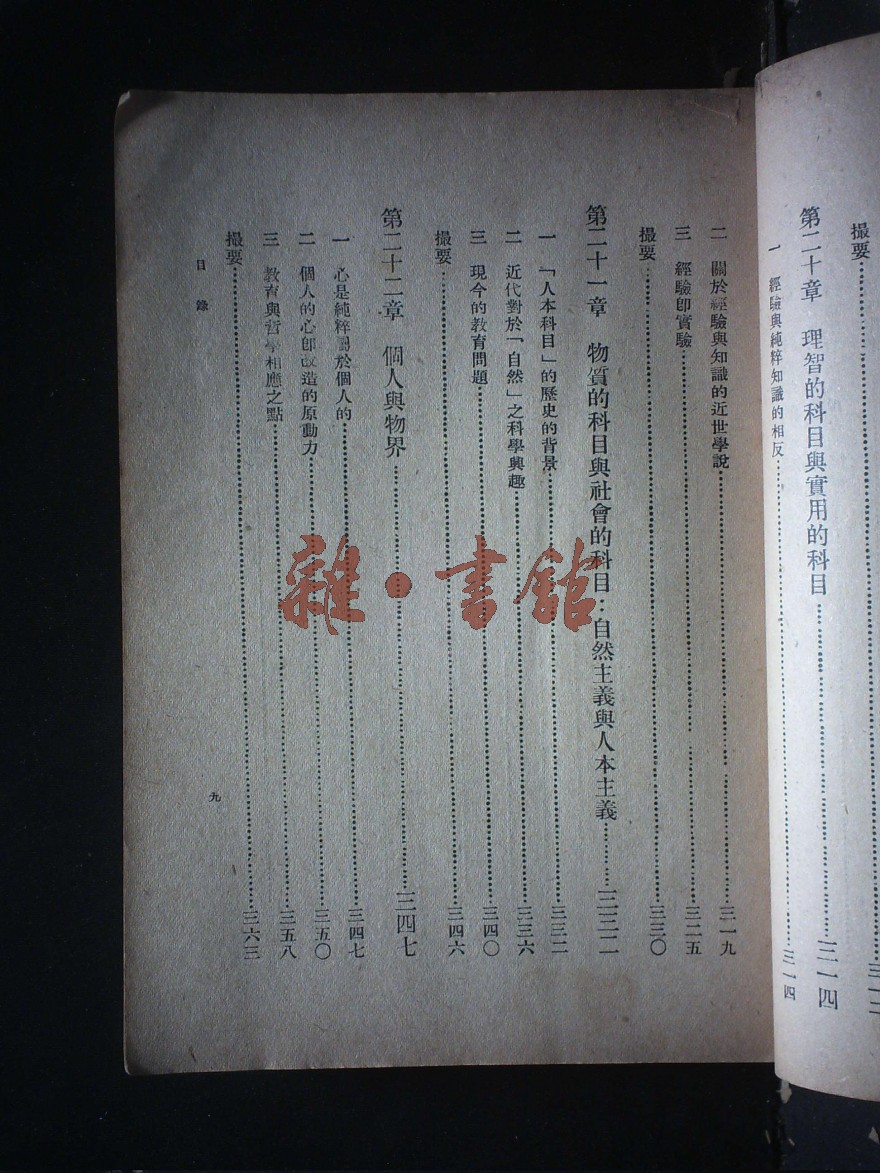 撮要……三一二
第二十章　理智的科目與實用的科目……三一四
一　經驗與純粹知識的相反……三一四
二　關於經驗與知識的近世學說……三一九
三　經驗卽實驗……三二五
撮要……三三〇
第二十一章　物質的科目與社會的科目：自然主義與人本主義……三三二
一　「人本科目」的歷史的背景……三三二
二　近代對於「自然」之科學興趣……三三六
三　現今的教育問題……三四〇
撮要……三四六
第二十二章　個人與物界……三四七
一　心是純粹屬於個人的……三四七
二　個人的心卽改造的原動力……三五〇
三　教育與哲學相應之點……三五八
撮要……三六三
目錄
九
雜·書館